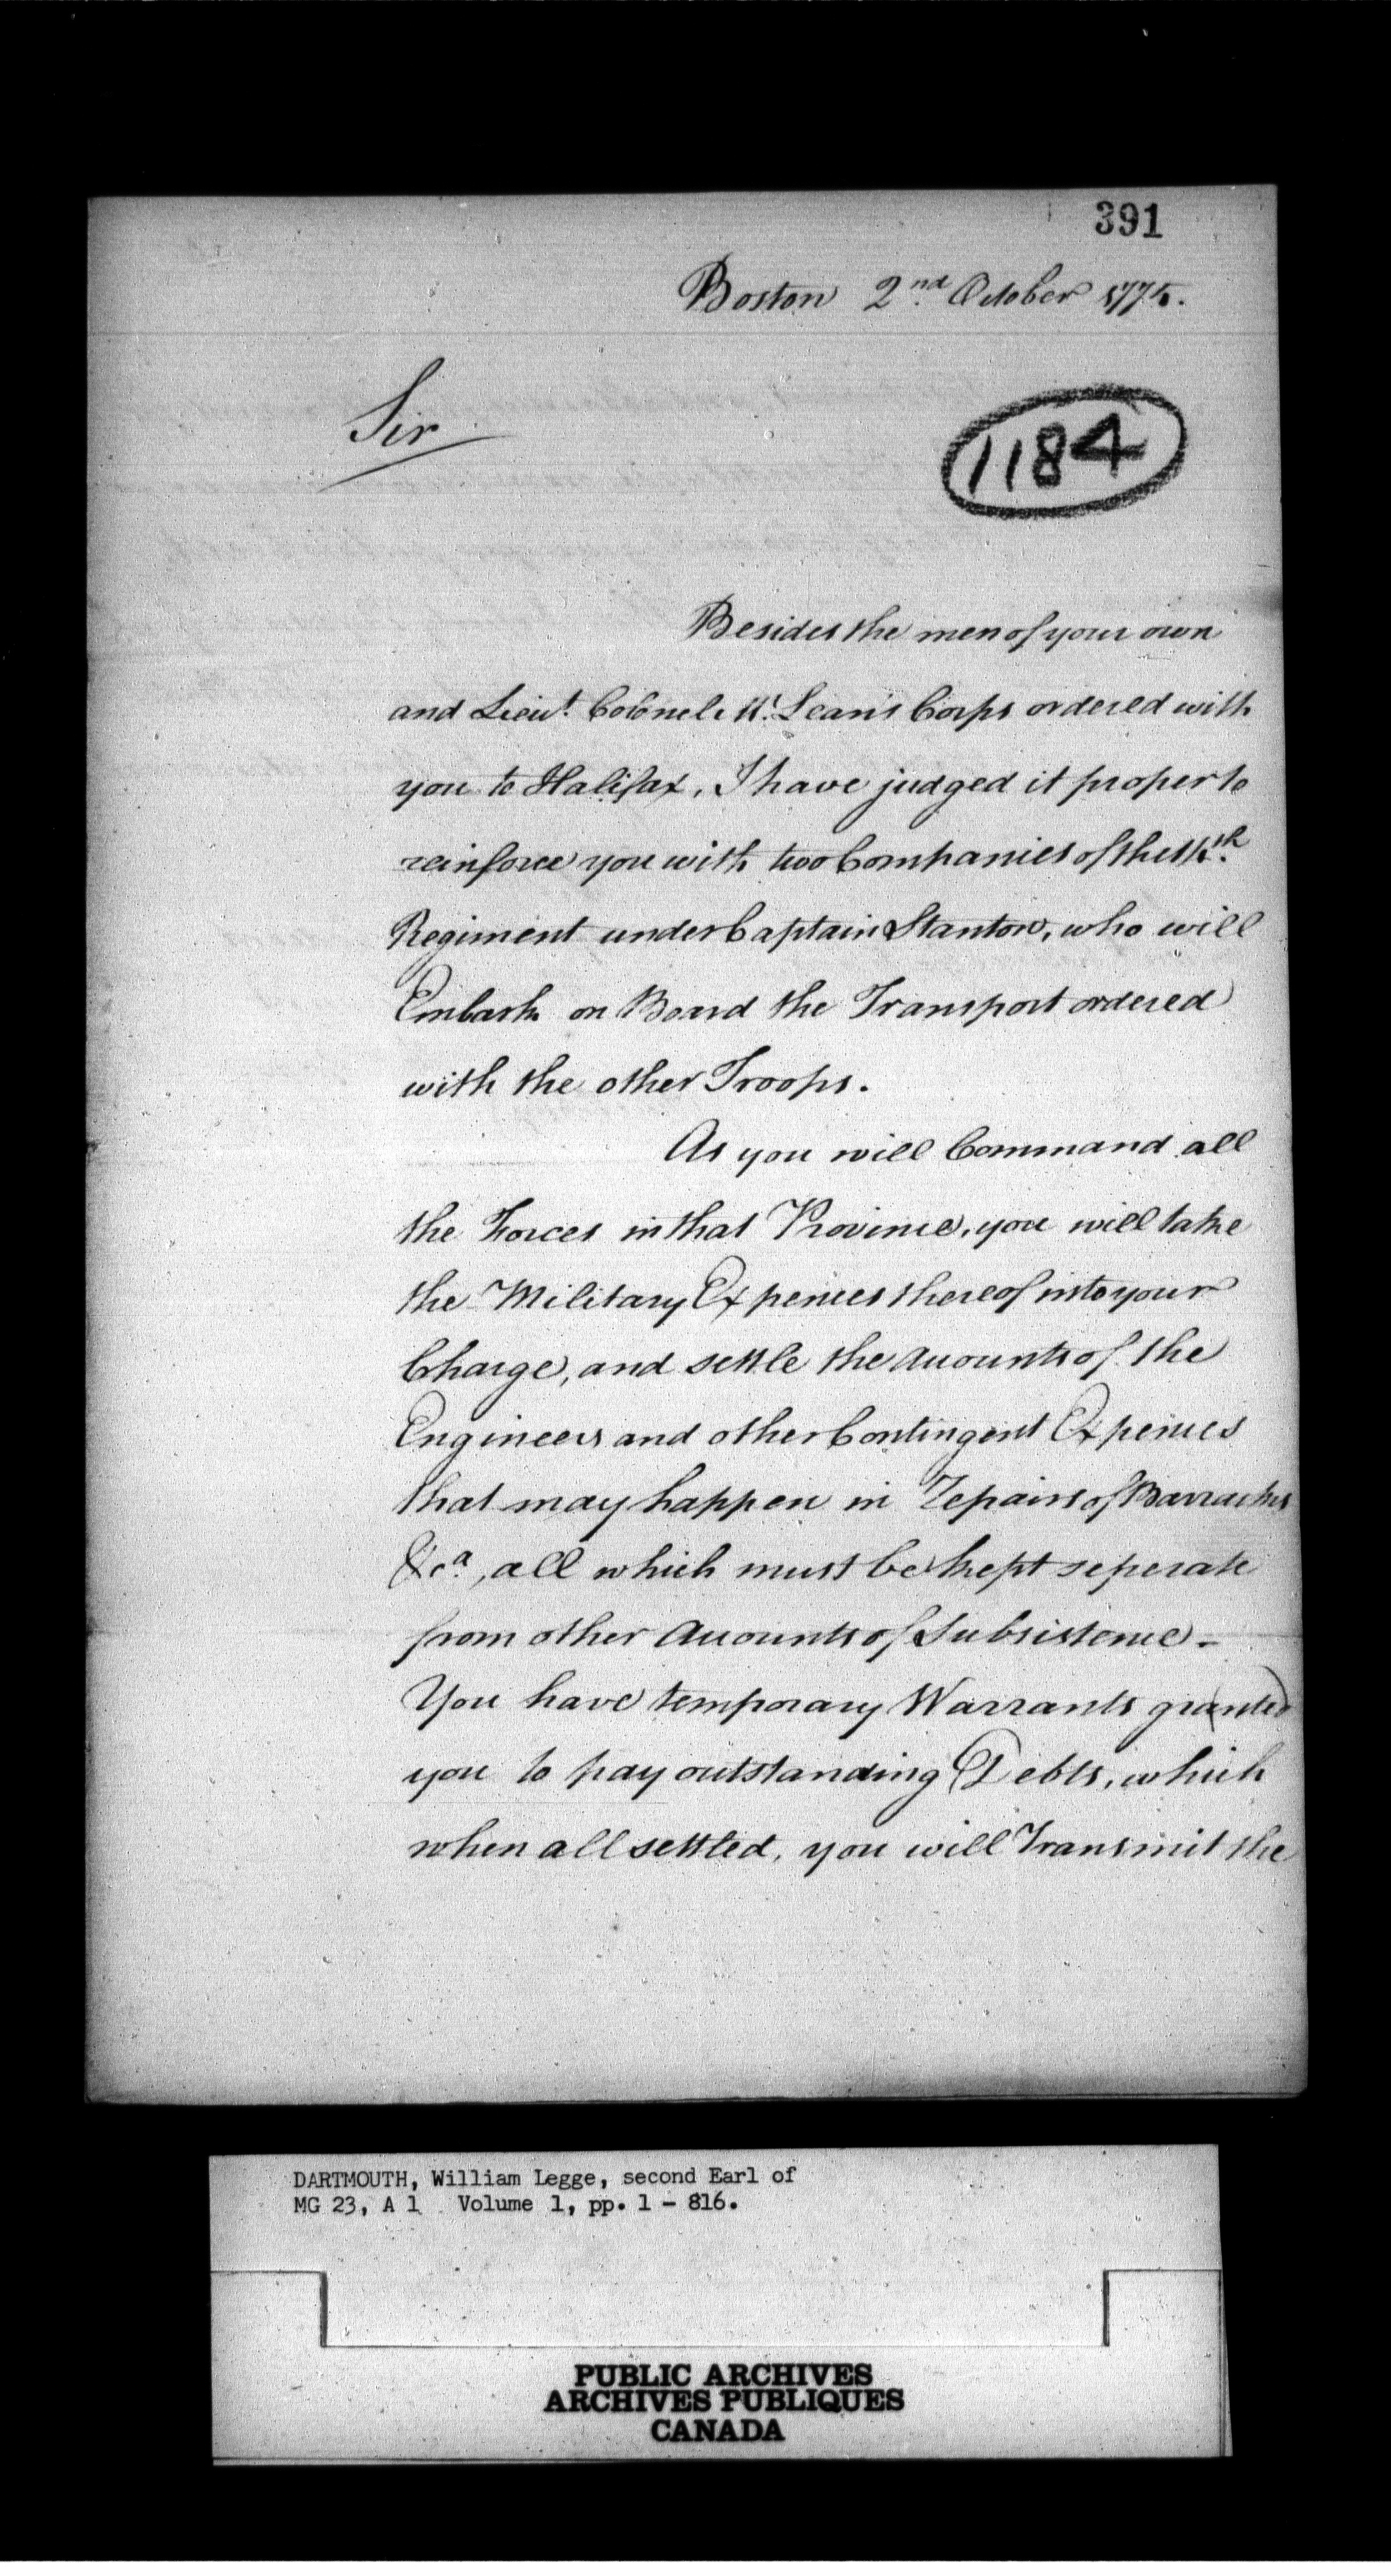 391
Boston 2nd October 1775.
Sir
1184
Besides the men of your own
and Lieut. Colonel Mc. Lean's Corps ordered with
you to Halifax, I have judged it proper to
reinforce you with two Companies of the 14th.
Regiment under Captain Stanton, who will
Embark on Board the Transport ordered
with the other Troops.
As you will Command all
the Forces in that Province, you will take
the Military Expences thereof into your
Charge, and settle the Accounts of the
Engineers and other Contingent Expences
that may happen in Repairs of Barracks
&ca., all which must be kept seperate
from other Accounts of Subsistence -
You have temporary Warrants granted
you to pay outstanding Debts, which
when all settled, you will Transmit the
DARTMOUTH, William Legge, second Earl of
MG 23, A 1 Volume 1, pp. 1 - 816.
PUBLIC ARCHIVES
ARCHIVES PUBLIQUES
CANADA